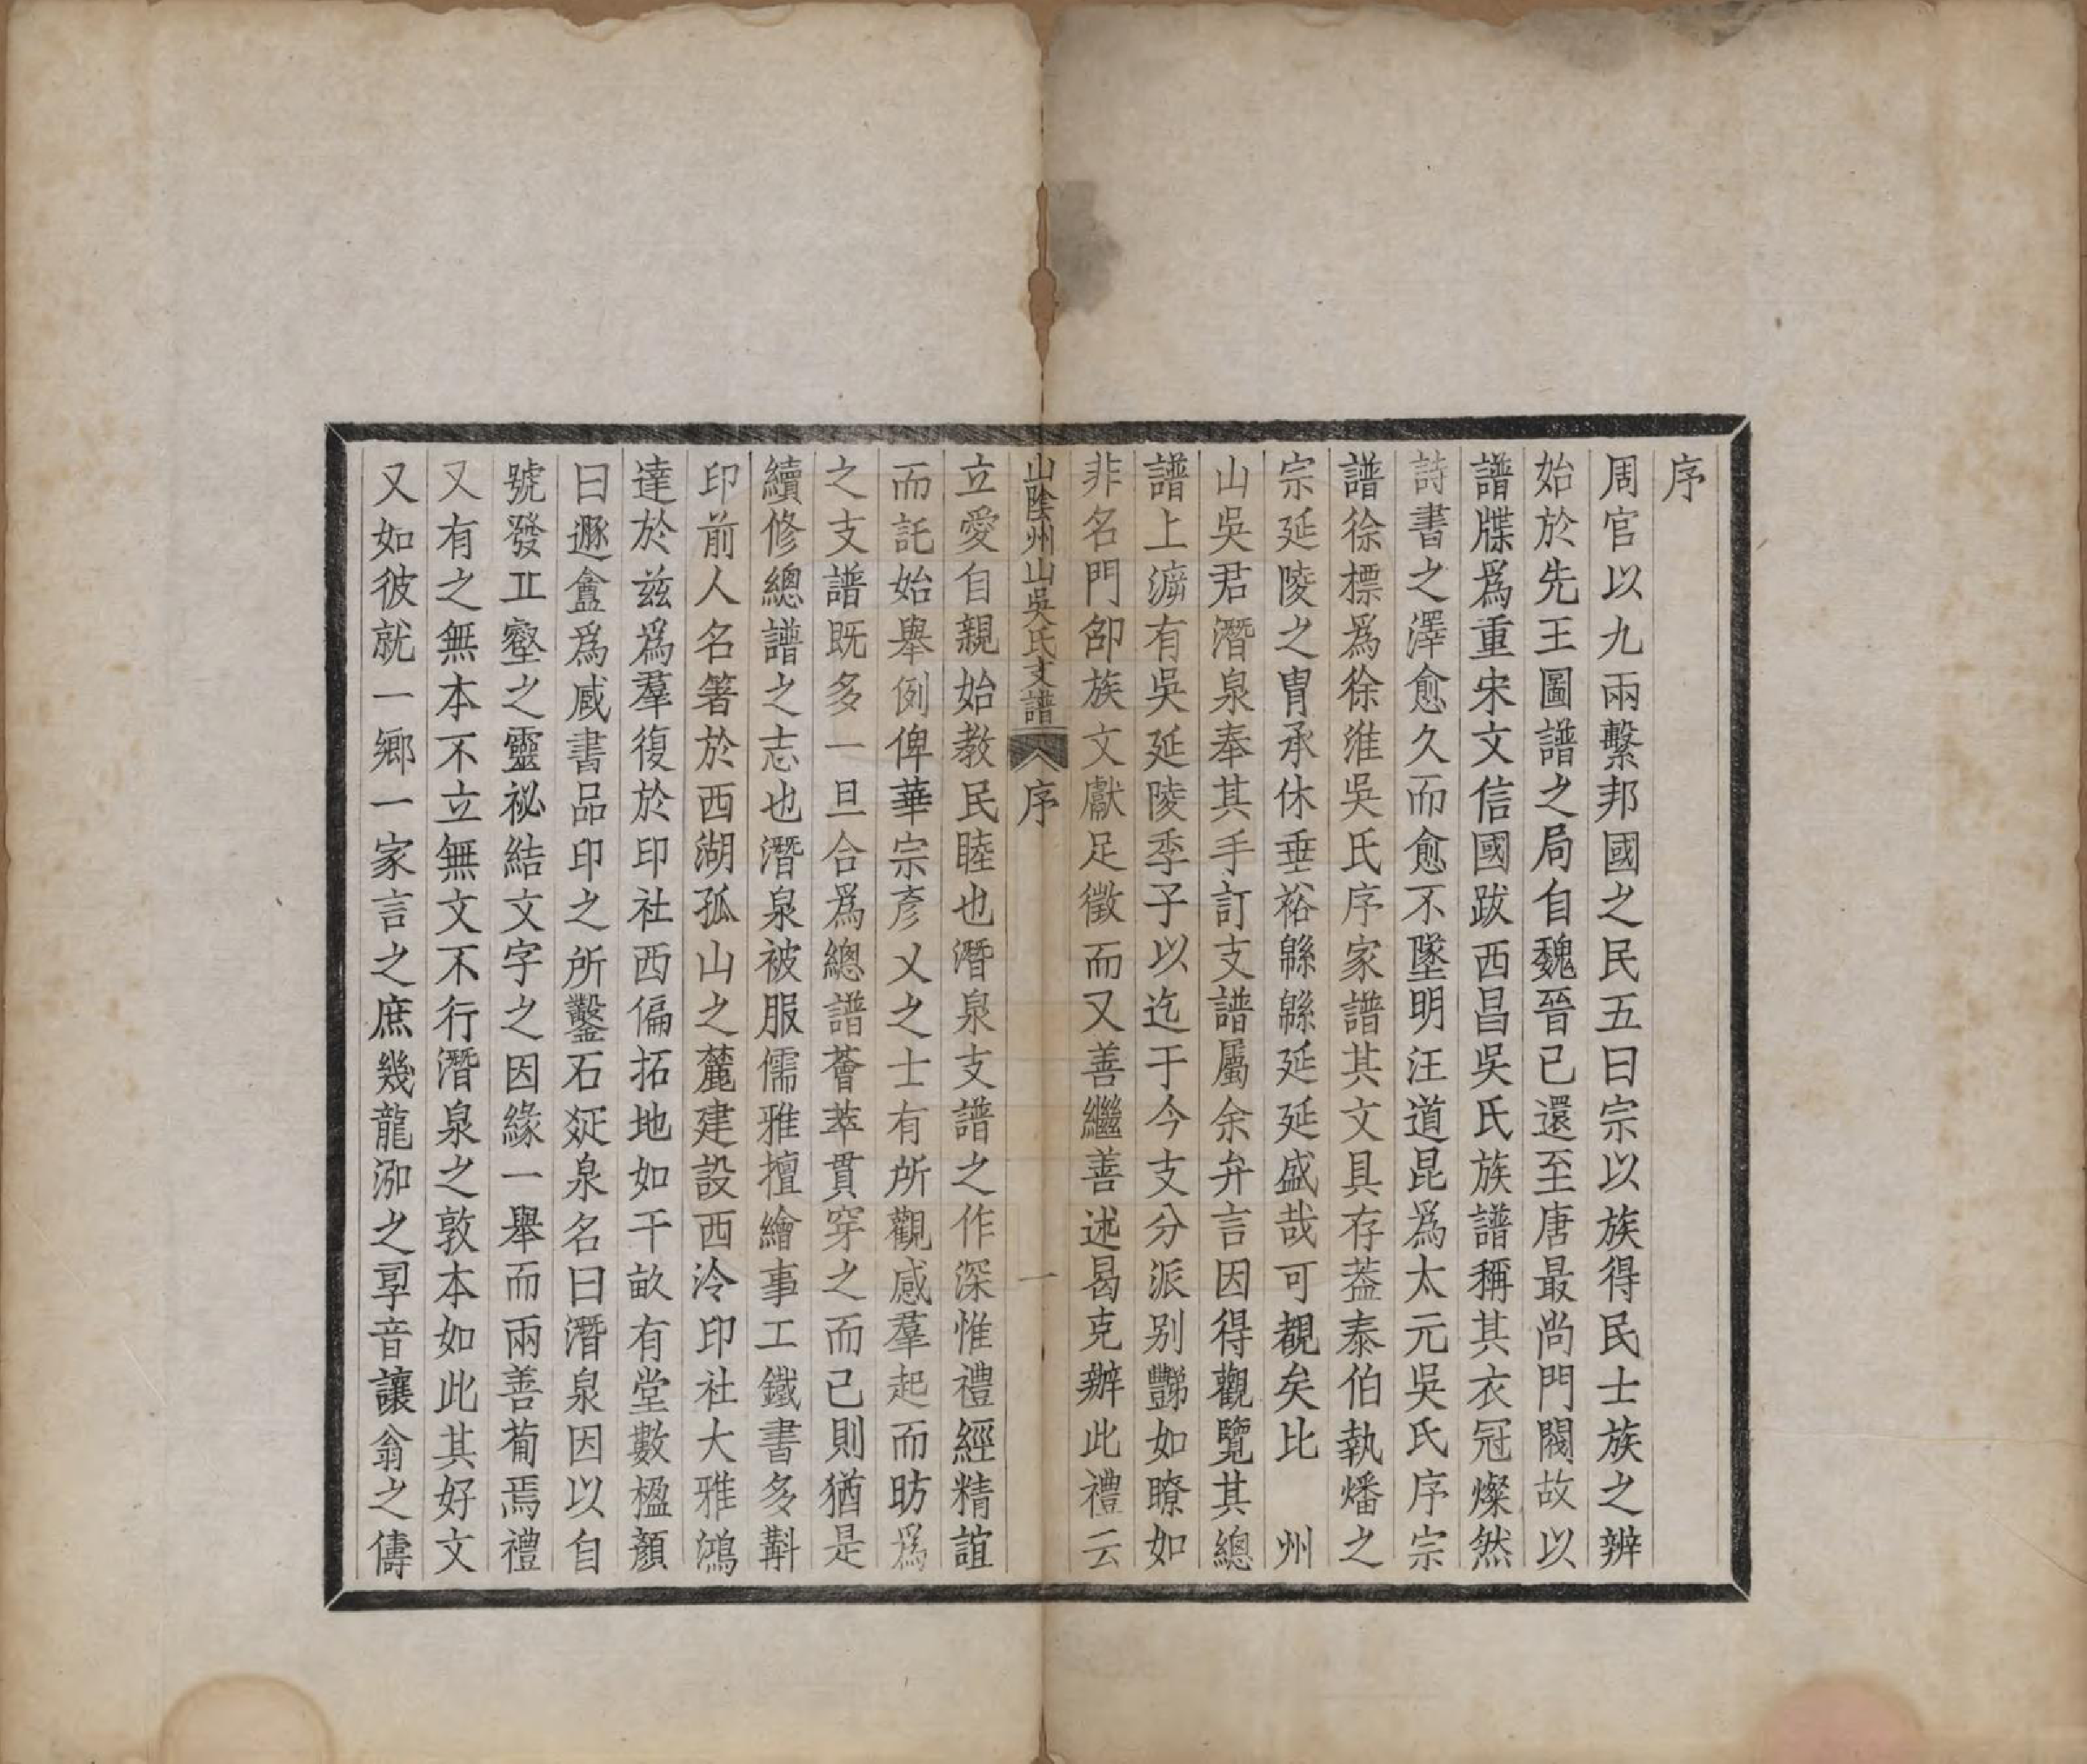 序
周官以九兩繫邦國之民五曰宗以族得民士族之辨
始於先王圖譜之局自魏晉已還至唐最尚門閥故以
譜牒爲重宋文信國跋西昌吳氏族譜稱其衣冠燦然
詩書之澤愈久而愈不墜明汪道昆爲太元吳氏序宗
譜徐標爲徐淮吳氏序家譜其文具存葢泰伯執燔之
宗延陵之胄承休垂裕緜緜延延盛哉可覩矣比　州
山吳君潛泉奉其手訂支譜屬余弁言因得觀覽其總
譜上泝有吳延陵季子以迄于今支分派别豑如瞭如
非名門卲族文獻足徵而又善繼善述曷克辦此禮云
山陰州山吳氏支譜 序 一
立愛自親始教民睦也潛泉支譜之作深惟禮經精誼
而託始舉例俾華宗彥乂之士有所觀感羣起而昉爲
之支譜既多一旦合爲總譜薈萃貫穿之而已則猶是
續修總譜之志也潛泉被服儒雅擅繪事工鐵書多斠
印前人名箸於西湖孤山之麓建設西泠印社大雅鴻
達於兹爲羣復於印社西偏拓地如干畝有堂數楹顏
曰遯盦爲臧書品印之所鑿石㢟泉名曰潛泉因以自
號發丠壑之靈祕結文字之因緣一舉而兩善葡焉禮
又有之無本不立無文不行潛泉之敦本如此其好文
又如彼就一鄉一家言之庶幾龍泓之㝈音讓翁之儔